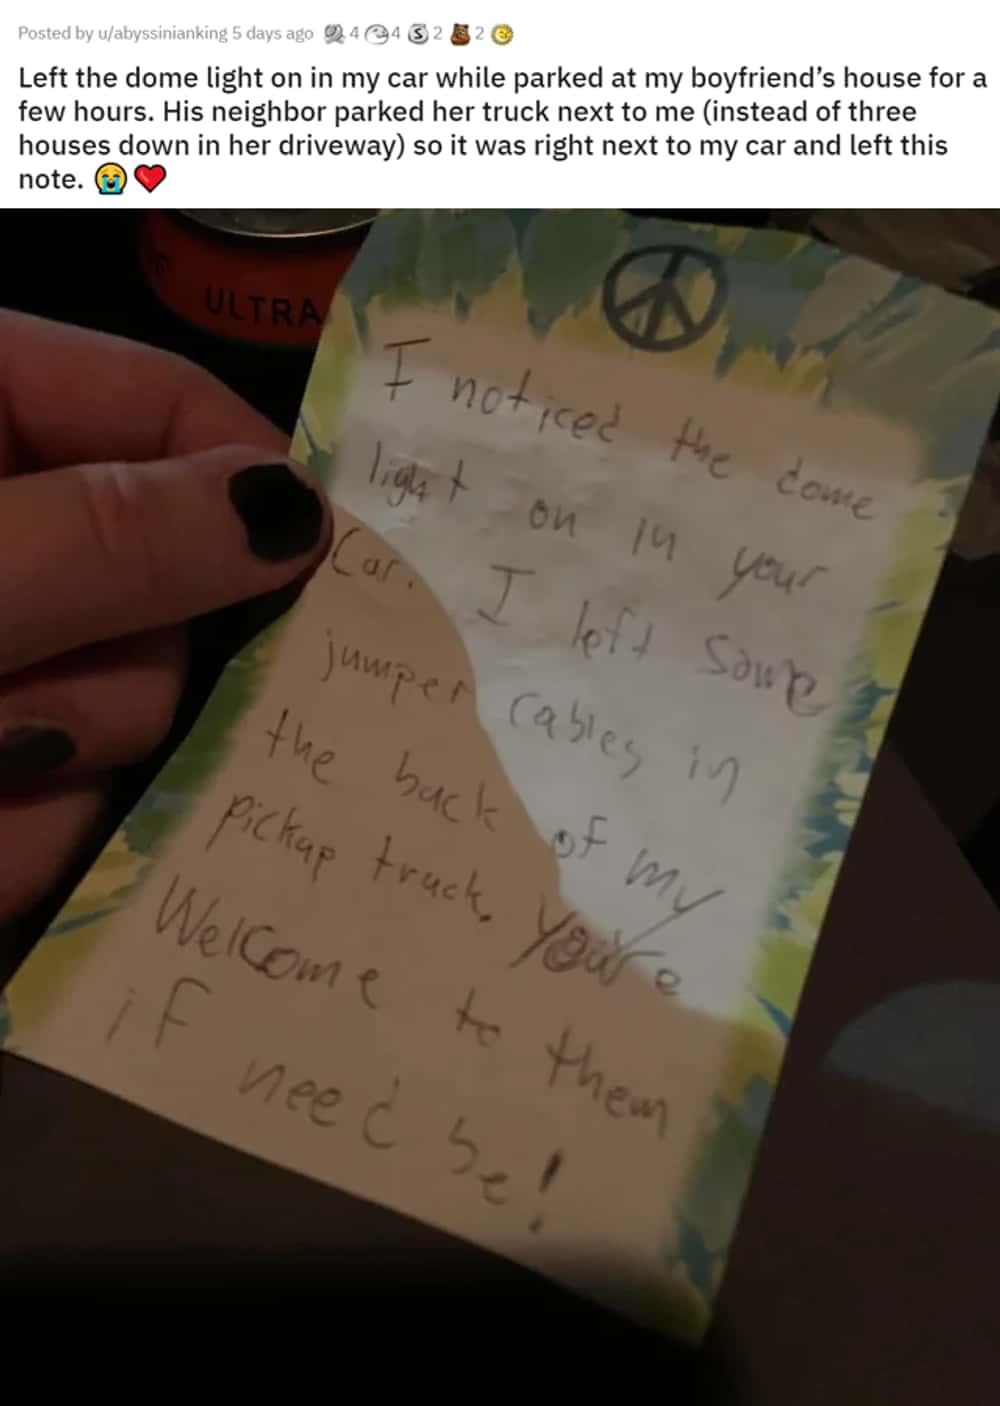 Posted by u/abyssinianking 5 days ago 4 4 S 2 2
Left the dome light on in my car while parked at my boyfriend's house for a
few hours. His neighbor parked her truck next to me (instead of three
houses down in her driveway) so it was right next to my car and left this
note. 😭❤️
ULTRA
I noticed the dome
light on in your
Car. I left some
jumper cables in
the back of my
pickup truck. You're
Welcome to them
if need be!